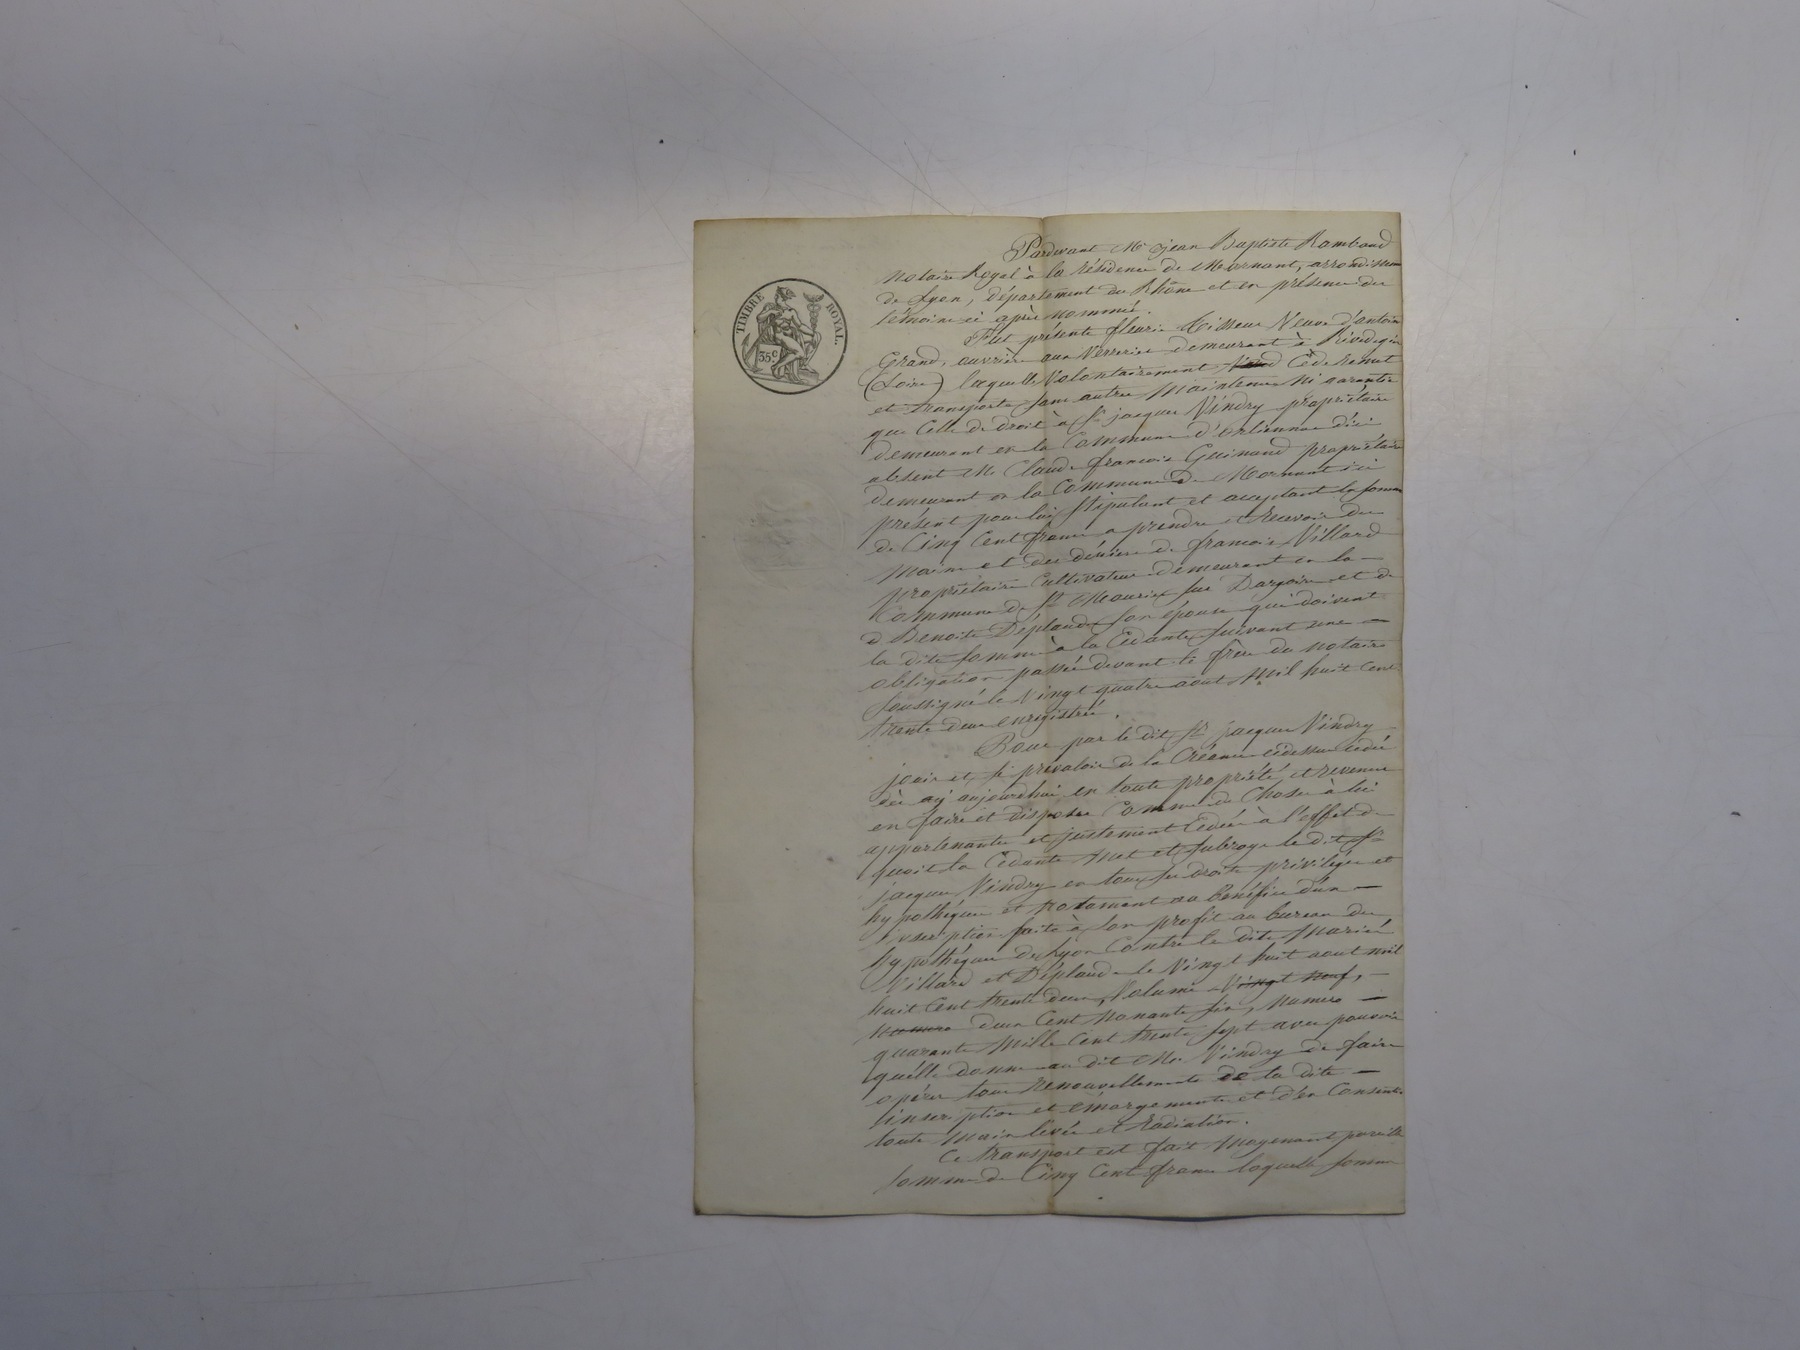 TIMBRE ROYAL.
35.c
Pardevant Me jean Baptiste Rambaud
notaire Royal à la résidence de Mornant, arrondissem
de Lyon, département du Rhône et en présence des
témoins ci après nommés.
Fut présente fleurie Veuve d'antoine
Grand, ouvrière aux Verreries demeurant à Rivedegier
(Loire) laquelle Volontairement Cède remet
et transporte sans autre Maintenue ni garantie
que Celle de droit à Sr jacques Vindry propriétaire
demeurant en la Commune d'orliennas d'ici
absent Me Claude françois Guinand propriétaire
demeurant en la Commune de Mornant ici
présent pour lui Stipulant et acceptant la somme
de Cinq Cent francs a prendre et recevoir des
Mains et des deniers de francois Villard
propriétaire Cultivateur demeurant en la
Commune de St Maurice sur Dargoire et de
d Benoite Déplaude son épouse qui doivent
la dite somme à la Cédante suivant une
obligation passée devant le frère du notaire
soussigné le Vingt quatre aout Mil huit Cent
trente deux enregistrée.
Pour par le dit Sr jacques Vindry
jouir et se prévaloir de la Créance cidessus cédée
dès aujourdhui en toute propriété et revenus
en faire et disposer Comme de Chose à lui
appartenante et justement Cédée à l'effet de
quoi la Cédante Met et subroge le dit Sr
jacques Vindry en tous ses droits privilèges et
hypothèques et notament au bénéfice d'une
inscription faite à son profit au bureau des
hypothèques de Lyon Contre les dits Mariés
Villard et Déplaude le Vingt huit aout mil
huit Cent trente deux, Volume Vingt neuf,
numero deux Cent Nonante six, numero
quarante Mille Cent trente sept avec pouvoir
quélle donne au dit Me Vindry de faire
opérer tous Renouvellements de la dite
inscription et émargements et d'en Consentir
toute Main levée et Radiation.
Ce transport est fait Moyenant pareille
somme de Cinq Cent francs laquelle somme